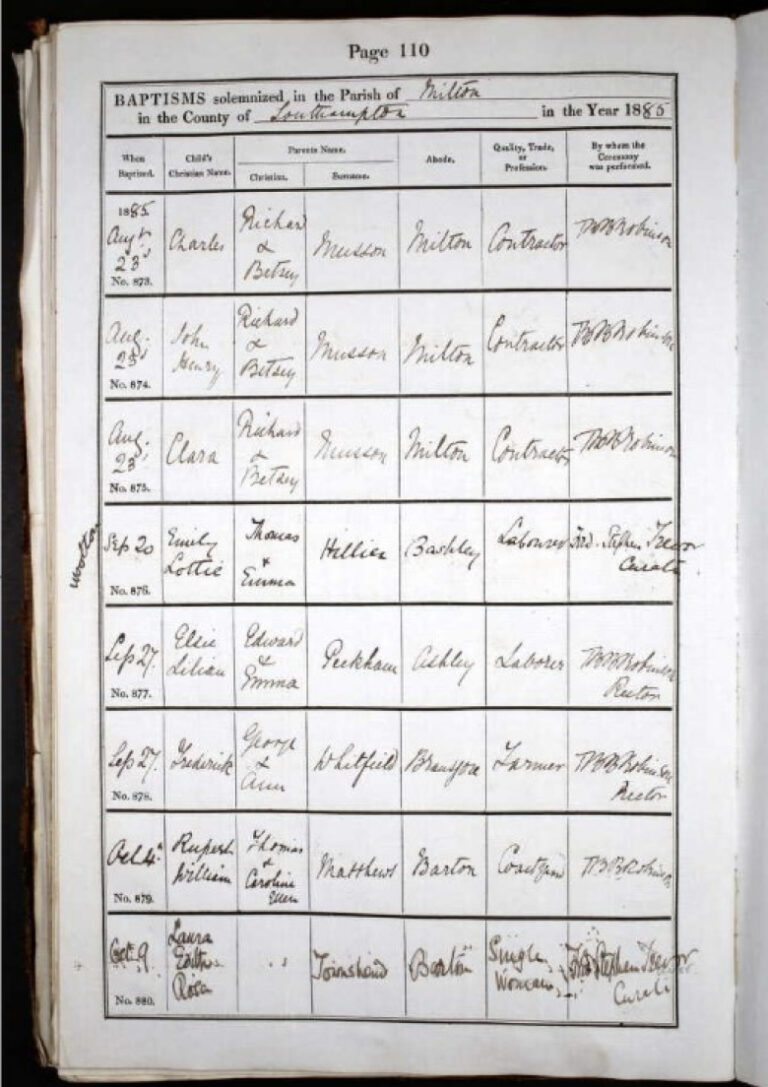 Page 110
BAPTISMS solemnized in the Parish of Milton
in the County of Southampton in the Year 1885
When Baptized.
Child's Christian Name.
Parents Name.
Christian.
Surname.
Abode.
Quality, Trade, or Profession.
By whom the Ceremony was performed.
1885.
Augt 23d
No. 873.
Charles
Richard & Betsey
Musson
Milton
Contractor
Robinson
Aug. 23d
No. 874.
John Henry
Richard & Betsey
Musson
Milton
Contractor
Robinson
Aug. 23d
No. 875.
Clara
Richard & Betsey
Musson
Milton
Contractor
Robinson
Wootton
Sep 20
No. 876.
Emily Lottie
Thomas & Emma
Hillier
Bashley
Labourer
Stephen Trevor
Curate
Sep 27.
No. 877.
Elsie Lilian
Edward & Emma
Peckham
Ashley
Laborer
Robinson
Rector
Sep 27.
No. 878.
Frederick
George & Ann
Whitfield
Bransgore
Farmer
Robinson
Rector
Oct 4th
No. 879.
Rupert William
Thomas & Caroline Ellen
Matthews
Barton
Robinson
Oct. 9
No. 880.
Laura Edith Rosa
Townshend
Barton
Single Woman
Stephen Trevor
Curate